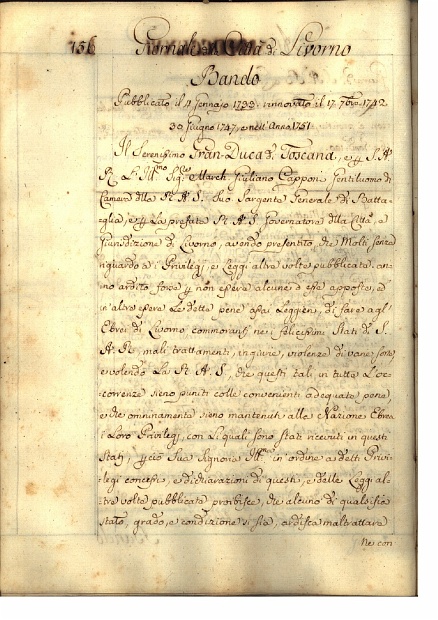 156 Giornali della Città di Livorno
Bando
Pubblicato il 4 Gennajo 1733. rinnovato il 17. 7bre 1742
30 Giugno 1747, e nell'Anno 1751
Il Serenissimo Gran-Duca di Toscana, e p S. A.
R. L'Ill.mo Sig.re March. Giuliano Capponi Gentiluomo di
Camera della R. A. S. Suo Sargente Generale di Batta-
glia, e p La prefata R. A. S. Governatore della Città, e
Giurisdizione di Livorno, avendo presentito, che Molti senza
riguardo a i Privilegj, e Leggi altre volte pubblicate, an-
no ardito, forse p non essere alcune d'esse apposte, ed
in altre essere le dette pene assai Leggieri, di fare agl'
Ebrei di Livorno commoranti ne felicissimi Stati di S.
A. R. mali trattamenti, ingiurie, violenze di varie sorte,
e volendo La R. A. S., che questi tali in tutte L'oc-
correnze sieno puniti colle convenienti adeguate pene
e che omninamente sieno mantenuti alla Nazione Ebrea
i Loro Privilegj, con Li quali sono stati ricevuti in questi
Stati, p ciò Sua Signoria Ill.ma in ordine a detti Privi-
legi concessi, e dichiarazioni di questi, e delle Leggi al-
tre volte pubblicate proibisce, che alcuno di qualsisia
stato, grado, e condizione si sia, ardisca maltrattare
Nè con